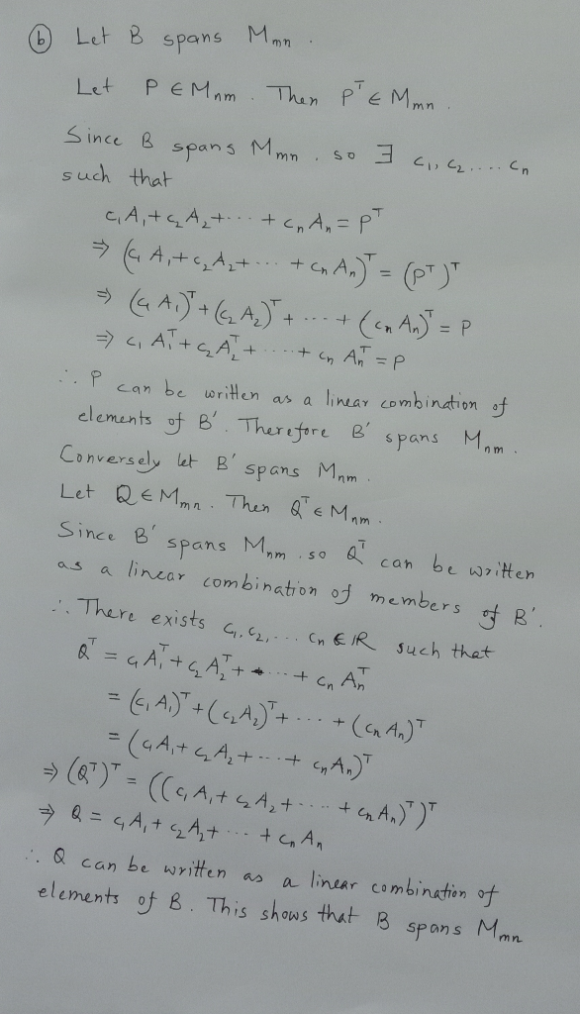 ⓑ Let B spans Mmn.
Let P ∈ Mnm. Then Pᵀ ∈ Mmn.
Since B spans Mmn, so ∃ c₁, c₂ .... cn
such that
c₁A₁ + c₂A₂ + ... + cnAn = Pᵀ
⇒ (c₁A₁ + c₂A₂ + ... + cnAn)ᵀ = (Pᵀ)ᵀ
⇒ (c₁A₁)ᵀ + (c₂A₂)ᵀ + ... + (cnAn)ᵀ = P
⇒ c₁A₁ᵀ + c₂A₂ᵀ + .... + cnAnᵀ = P
∴ P can be written as a linear combination of
elements of B'. Therefore B' spans Mnm.
Conversely let B' spans Mnm.
Let Q ∈ Mmn. Then Qᵀ ∈ Mnm.
Since B' spans Mnm, so Qᵀ can be written
as a linear combination of members of B'.
∴ There exists c₁, c₂, ... cn ∈ ℝ such that
Qᵀ = c₁A₁ᵀ + c₂A₂ᵀ + ... + cnAnᵀ
= (c₁A₁)ᵀ + (c₂A₂)ᵀ + ... + (cnAn)ᵀ
= (c₁A₁ + c₂A₂ + ... + cnAn)ᵀ
⇒ (Qᵀ)ᵀ = ((c₁A₁ + c₂A₂ + .... + cnAn)ᵀ)ᵀ
⇒ Q = c₁A₁ + c₂A₂ + ... + cnAn
∴ Q can be written as a linear combination of
elements of B. This shows that B spans Mmn